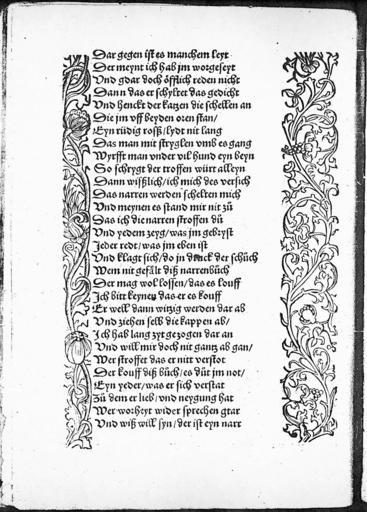 Dar gegen ist es manchem leyt
Der meynt ich hab jm worgeseyt
Vnd gdar doch öfflich reden nicht
Dann das er schyltet das gedicht
Vnd henckt der katzen die schellen an
Die jm vff beyden oren stan /
Eyn rüdig rosß / lydt nit lang
Das man mit stryglen vmb es gang
Wyrfft man vnder vil hund eyn beyn
So schrygt der troffen würt alleyn
Dann wisßlich / ich mich des versich
Das narren werden schelten mich
Vnd meynen es stand mir nit zů
Das ich die narren stroffen dů
Vnd yedem zeyg / was jm gebryst
Jeder redt / was jm eben ist
Vnd klagt sich / do jn druck der schůch
Wem nit gefált diß narrenbůch
Der mag wol lossen / das es louff
Ich bitt keynen das er es kouff
Er well dann witzig werden dar ab
Vnd ziehen selb die kappen ab /
Ich hab lang zyt gezogen dar an
Vnd will mir doch nit gantz ab gan /
Wer stroffet das er nitt verstot
Der kouff diß bůch / es důt jm not /
Eyn yeder / was er sich verstat
Zů dem er lieb / vnd neygung hat
Wer worheyt wider sprechen gtar
Vnd wiß will syn / der ist eyn narr